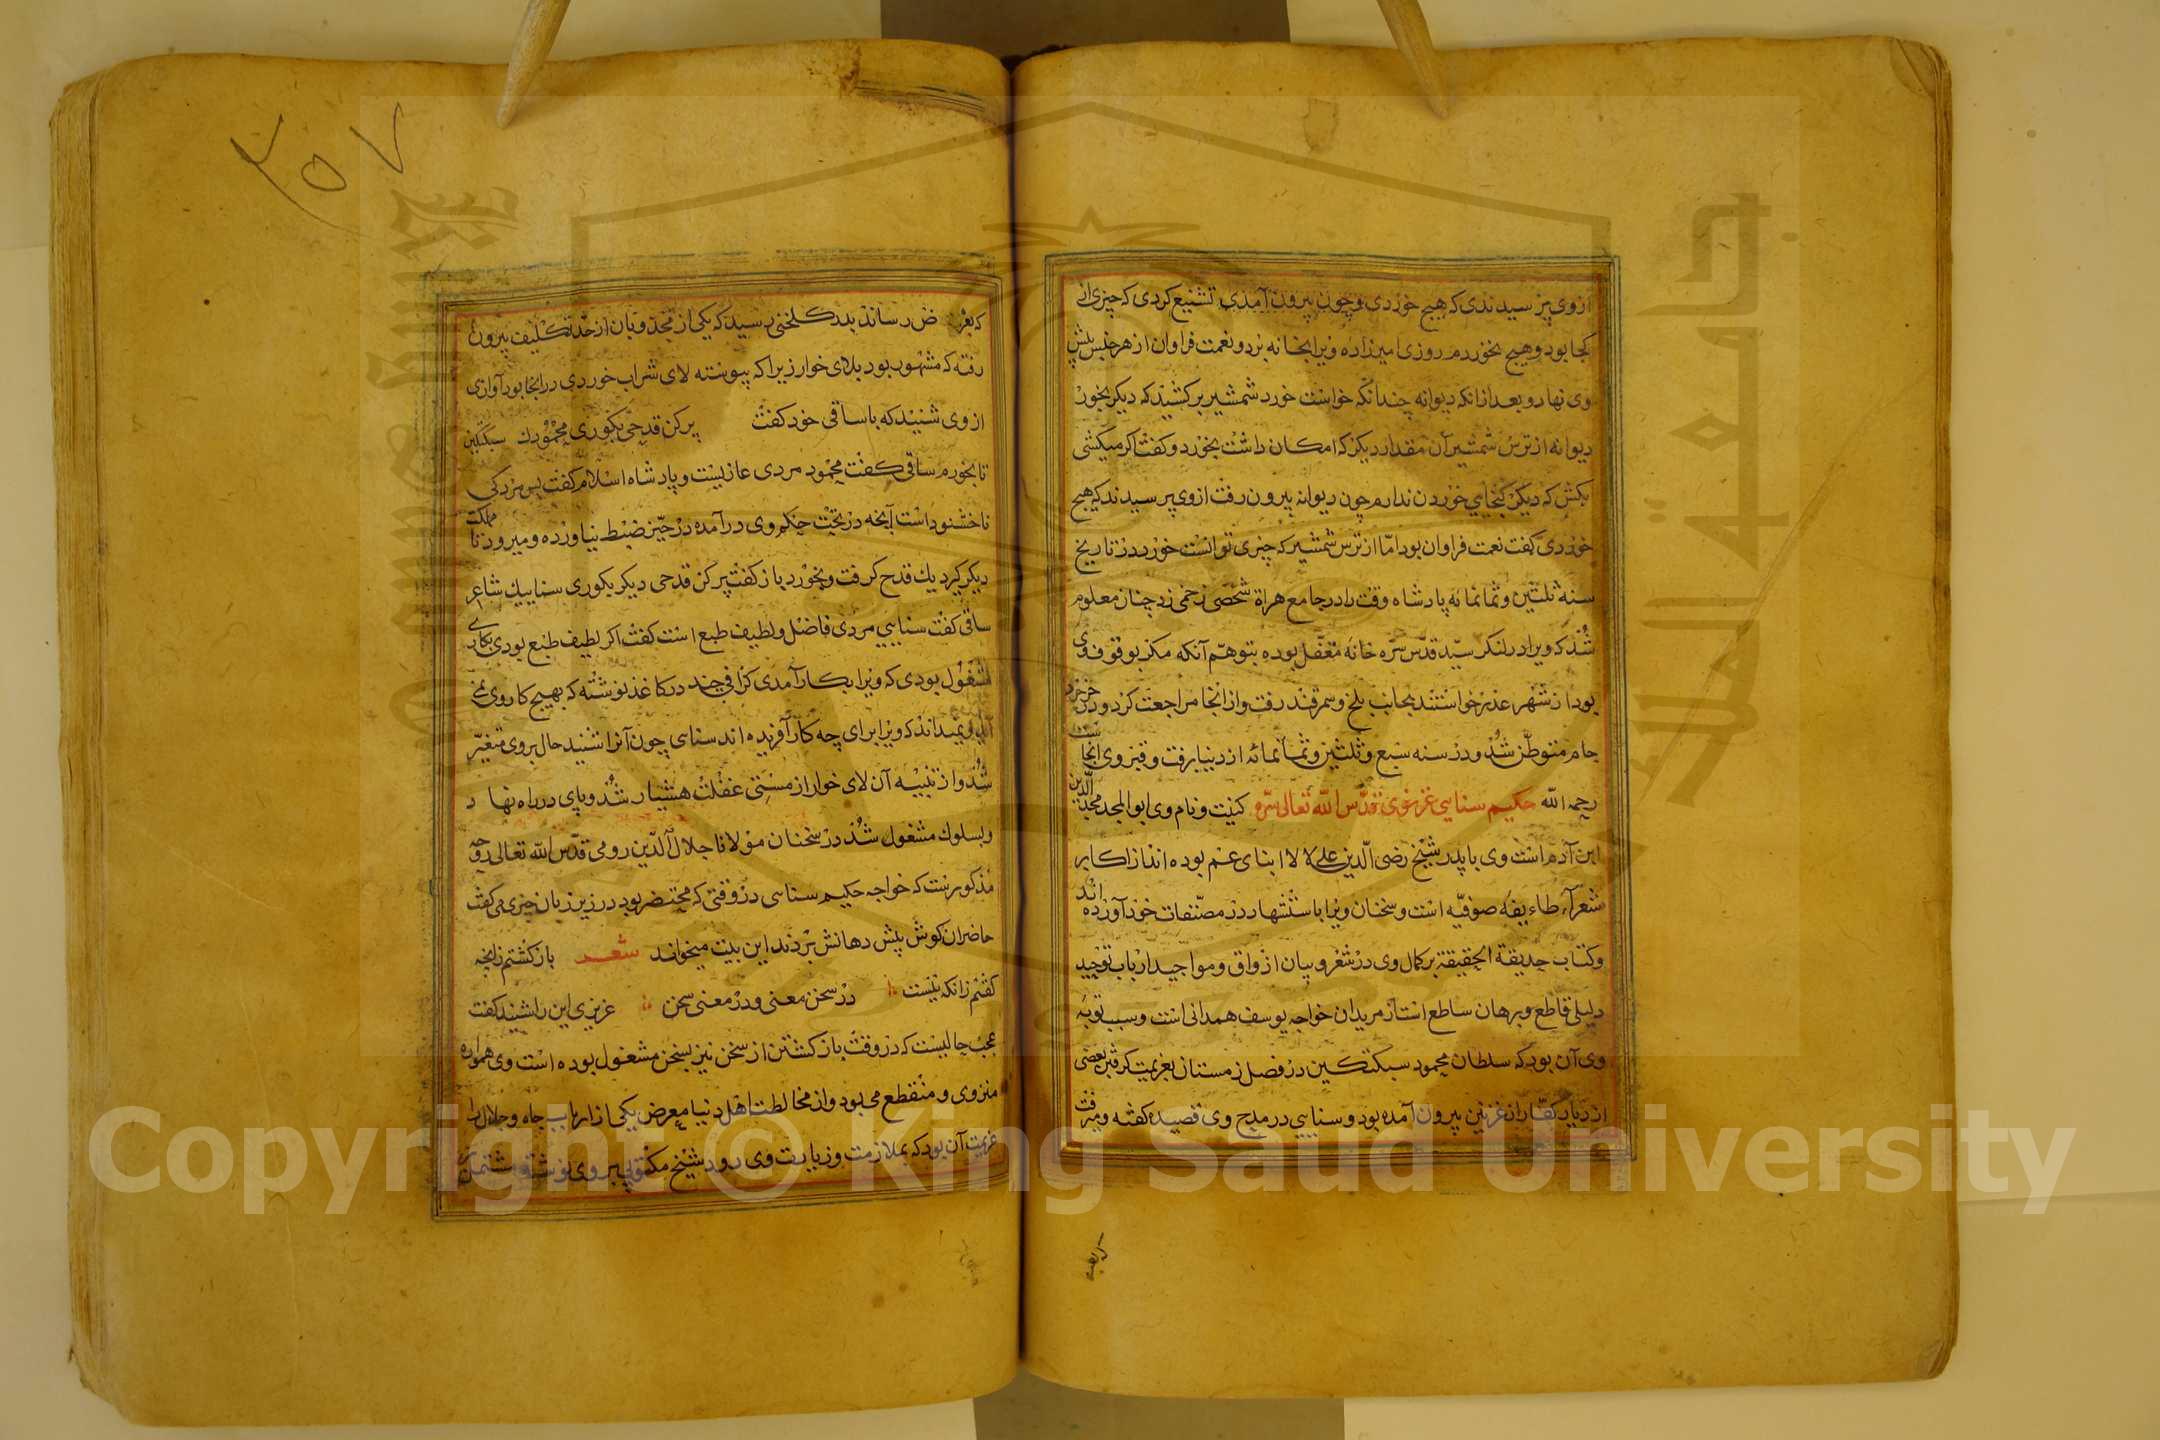 از وی پرسیدندی که هیچ خوردی و چون بیرون آمدی تشنیع کردی که چیزی از
کجا بود و هیچ نخوردم روزی امیرزاده ویرا بخانه برد و نعمت فراوان از هر جنس پیش
وی نهاد و بعد از انکه دیوانه چندانکه خواست خورد شمشیر برکشید که دیکر بخور
دیوانه از ترس شمشیر آن مقدار دیکر که امکان داشت بخورد و کفت اکر میکشی
بکش که دیکر کنجایی خوردن ندارم چون دیوانه بیرون رفت از وی پرسیدند که هیچ
خوردی کفت نعمت فراوان بود امّا از ترس شمشیر که چیزی توانست خورد در تاریخ
سنه ثلثین و ثمانمائه پادشاه وقت را در جامع هراة شخصی زخمی زد چنان معلوم
شد که ویرا در لنکر سیّد قدّس سرّه خانه مقفّل بوده بتوهّم آنکه مکر بوقوف وی
بود از شهر عذر خواستند بجانب بلخ و سمرقند رفت و از انجا مراجعت کرد و در خرجرد
جام متوطّن شد و در سنه سبع و ثلثین و ثمانمائه از دنیا برفت و قبر وی انجا ست
رحمه الله حکیم سنایی غزنوی قدّس الله تعالی سرّه کنیت و نام وی ابو المجد مجد الدین
ابن آدم است وی با پدر شیخ رضی الدّین علی لالا ابنای عم بوده اند از اکابر
شعرآء طایفه صوفیّه است و سخنان ویرا باستشهاد در مصنّفات خود آورده اند
و کتاب حدیقة الحقیقة بر کمال وی در شعر و بیان اذواق و مواجید ارباب توحید
دلیلی قاطع و برهان ساطع است از مریدان خواجه یوسف همدانی است و سبب توبه
وی آن بود که سلطان محمود سبکتکین در فصل زمستان بعزیمت کرفتن بعضی
از دیار کفّار از غزنین بیرون آمده بود و سنایی در مدح وی قصیده کفته و میرفت
تا بعرض
۲۵۷
که بعرض رساند بدر کلخنی رسید که یکی از مجذوبان از حد تکلیف بیرون
رفته که مشهور بود بلای خوار زیرا که پیوسته لای شراب خوردی در انجا بود آوازی
از وی شنید که با ساقی خود کفت پر کن قدحی بکوری محمودك سبکتکین
تا بخورم ساقی کفت محمود مردی غازیست و پادشاه اسلام کفت بس مردکی
ناخشنود است آنچه در تحت حکم وی در آمده در حیّز ضبط نیاورده و میرود تا مملکت
دیکر کیرد یك قدح کرفت و بخورد باز کفت پر کن قدحی دیکر بکوری سناییك شاعر
ساقی کفت سنایی مردی فاضل و لطیف طبع است کفت اکر لطیف طبع بودی بکاری
مشغول بودی که ویرا بکار آمدی کزافی چند در کاغذ نوشته که بهیچ کار وی نمی
آید و نمیداند که ویرا برای چه کار آفریده اند سنایی چون آنرا شنید حال بروی متغیّر
شد و از تنبیه آن لای خوار از مستی غفلت هشیار شد و پای در راه نهاد
و بسلوك مشغول شد در سخنان مولانا جلال الدّین رومی قدّس الله تعالی روحه
مذکورست که خواجه حکیم سنایی در وقتی که محتضر بود در زیر زبان چیزی می کفت
حاضران کوش پیش دهانش بردند این بیت میخواند شعر باز کشتم زانچه
کفتم زانکه نیست در سخن معنی و در معنی سخن عزیزی این را شنید کفت
عجب حالیست که در وقت باز کشتن از سخن نیز بسخن مشغول بوده است وی همواره
منزوی و منقطع می بود و از مخالطت اهل دنیا معرض یکی از ارباب جاه و جلال را
عزیمت آن بود که بملازمت و زیارت وی رود شیخ مکتوبی بروی نوشته مشتمل بر
Copyright © King Saud University